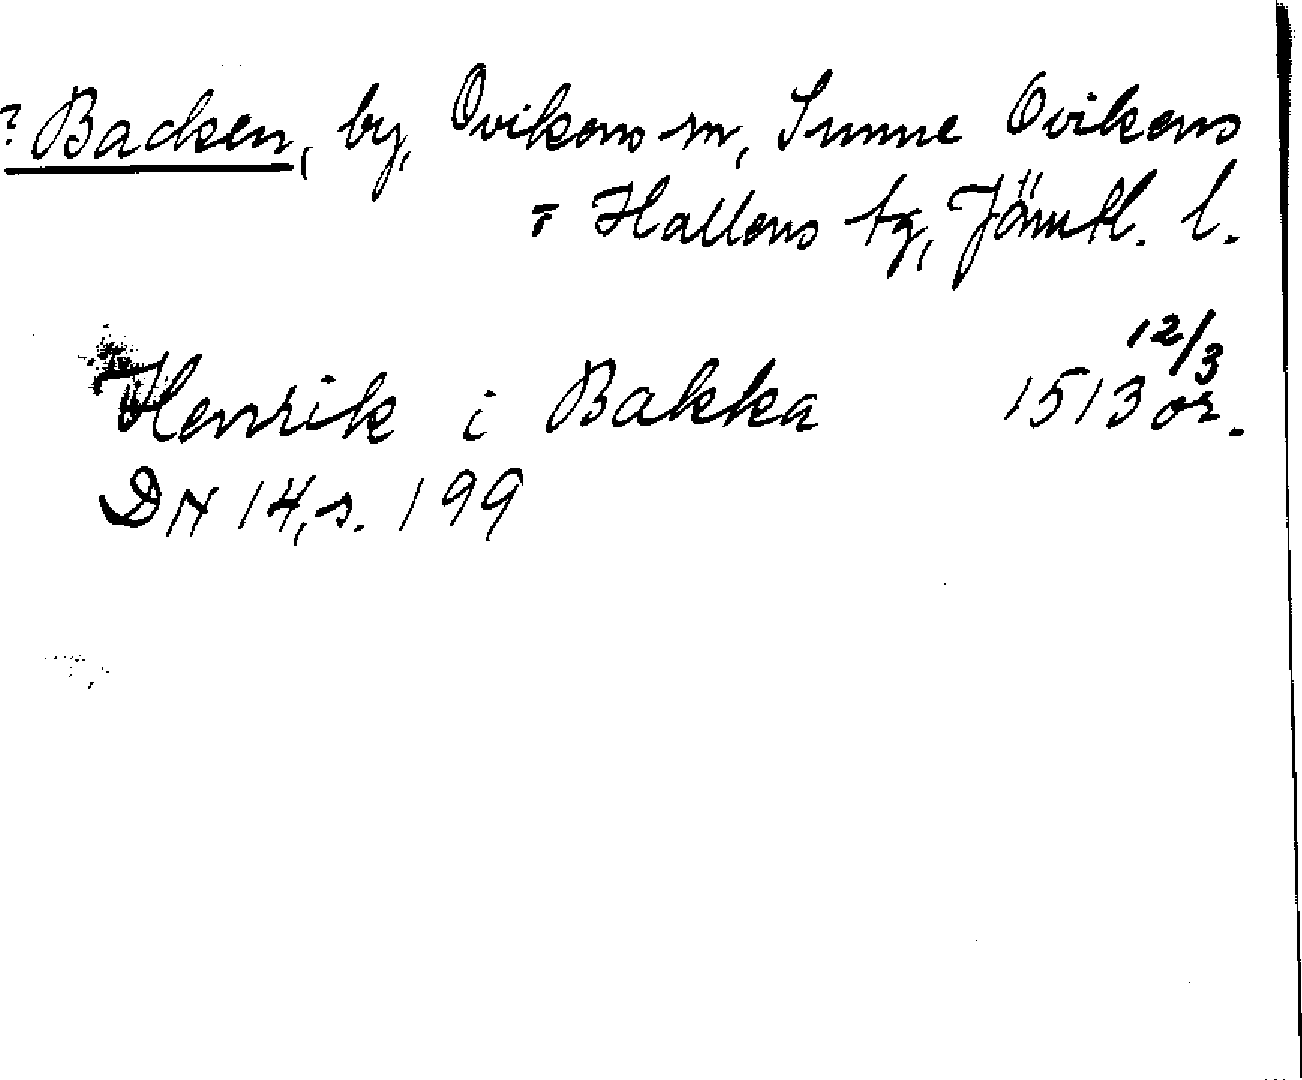 ? Backen, by, Ovikens sn, Sunne Ovikens
o Hallens tg, Jämtl. l.
Henrik i Bakka 1513 12/3 or.
DN 14, s. 199